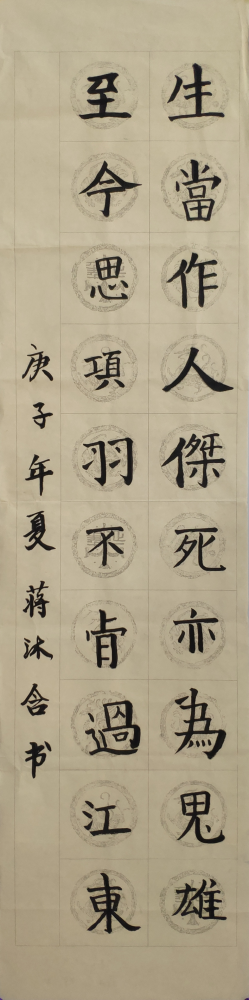 生當作人傑死亦為鬼雄
至今思項羽不肯過江東
庚子年夏蒋沐含书